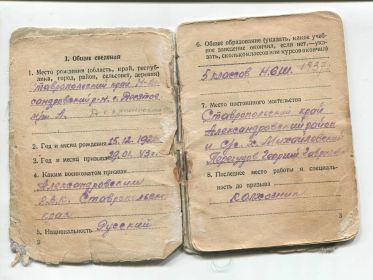 I. Общие сведения
1. Место рождения (область, край, респуб-
лика, город, район, сельсовет, деревня)
Ставропольский край
2. Год и месяц рождения 15.12.192
3. Год и месяц призыва 29.01.43г.
4. Каким военкоматом призван
Александровским
Р.В.К. Ставропольск
края
5. Национальность Русский
2
6. Общее образование (указать, какое учеб-
ное заведение окончил, если нет,—указать, сколько классов или курсов окончил)
5 классов Н.С.Ш.
7. Место постоянного жительства
Ставропольский край
Александровский район
с/с. х. Михайловский
Георгий
8. Последнее место работы и специаль-
ность до призыва
колхозник
3